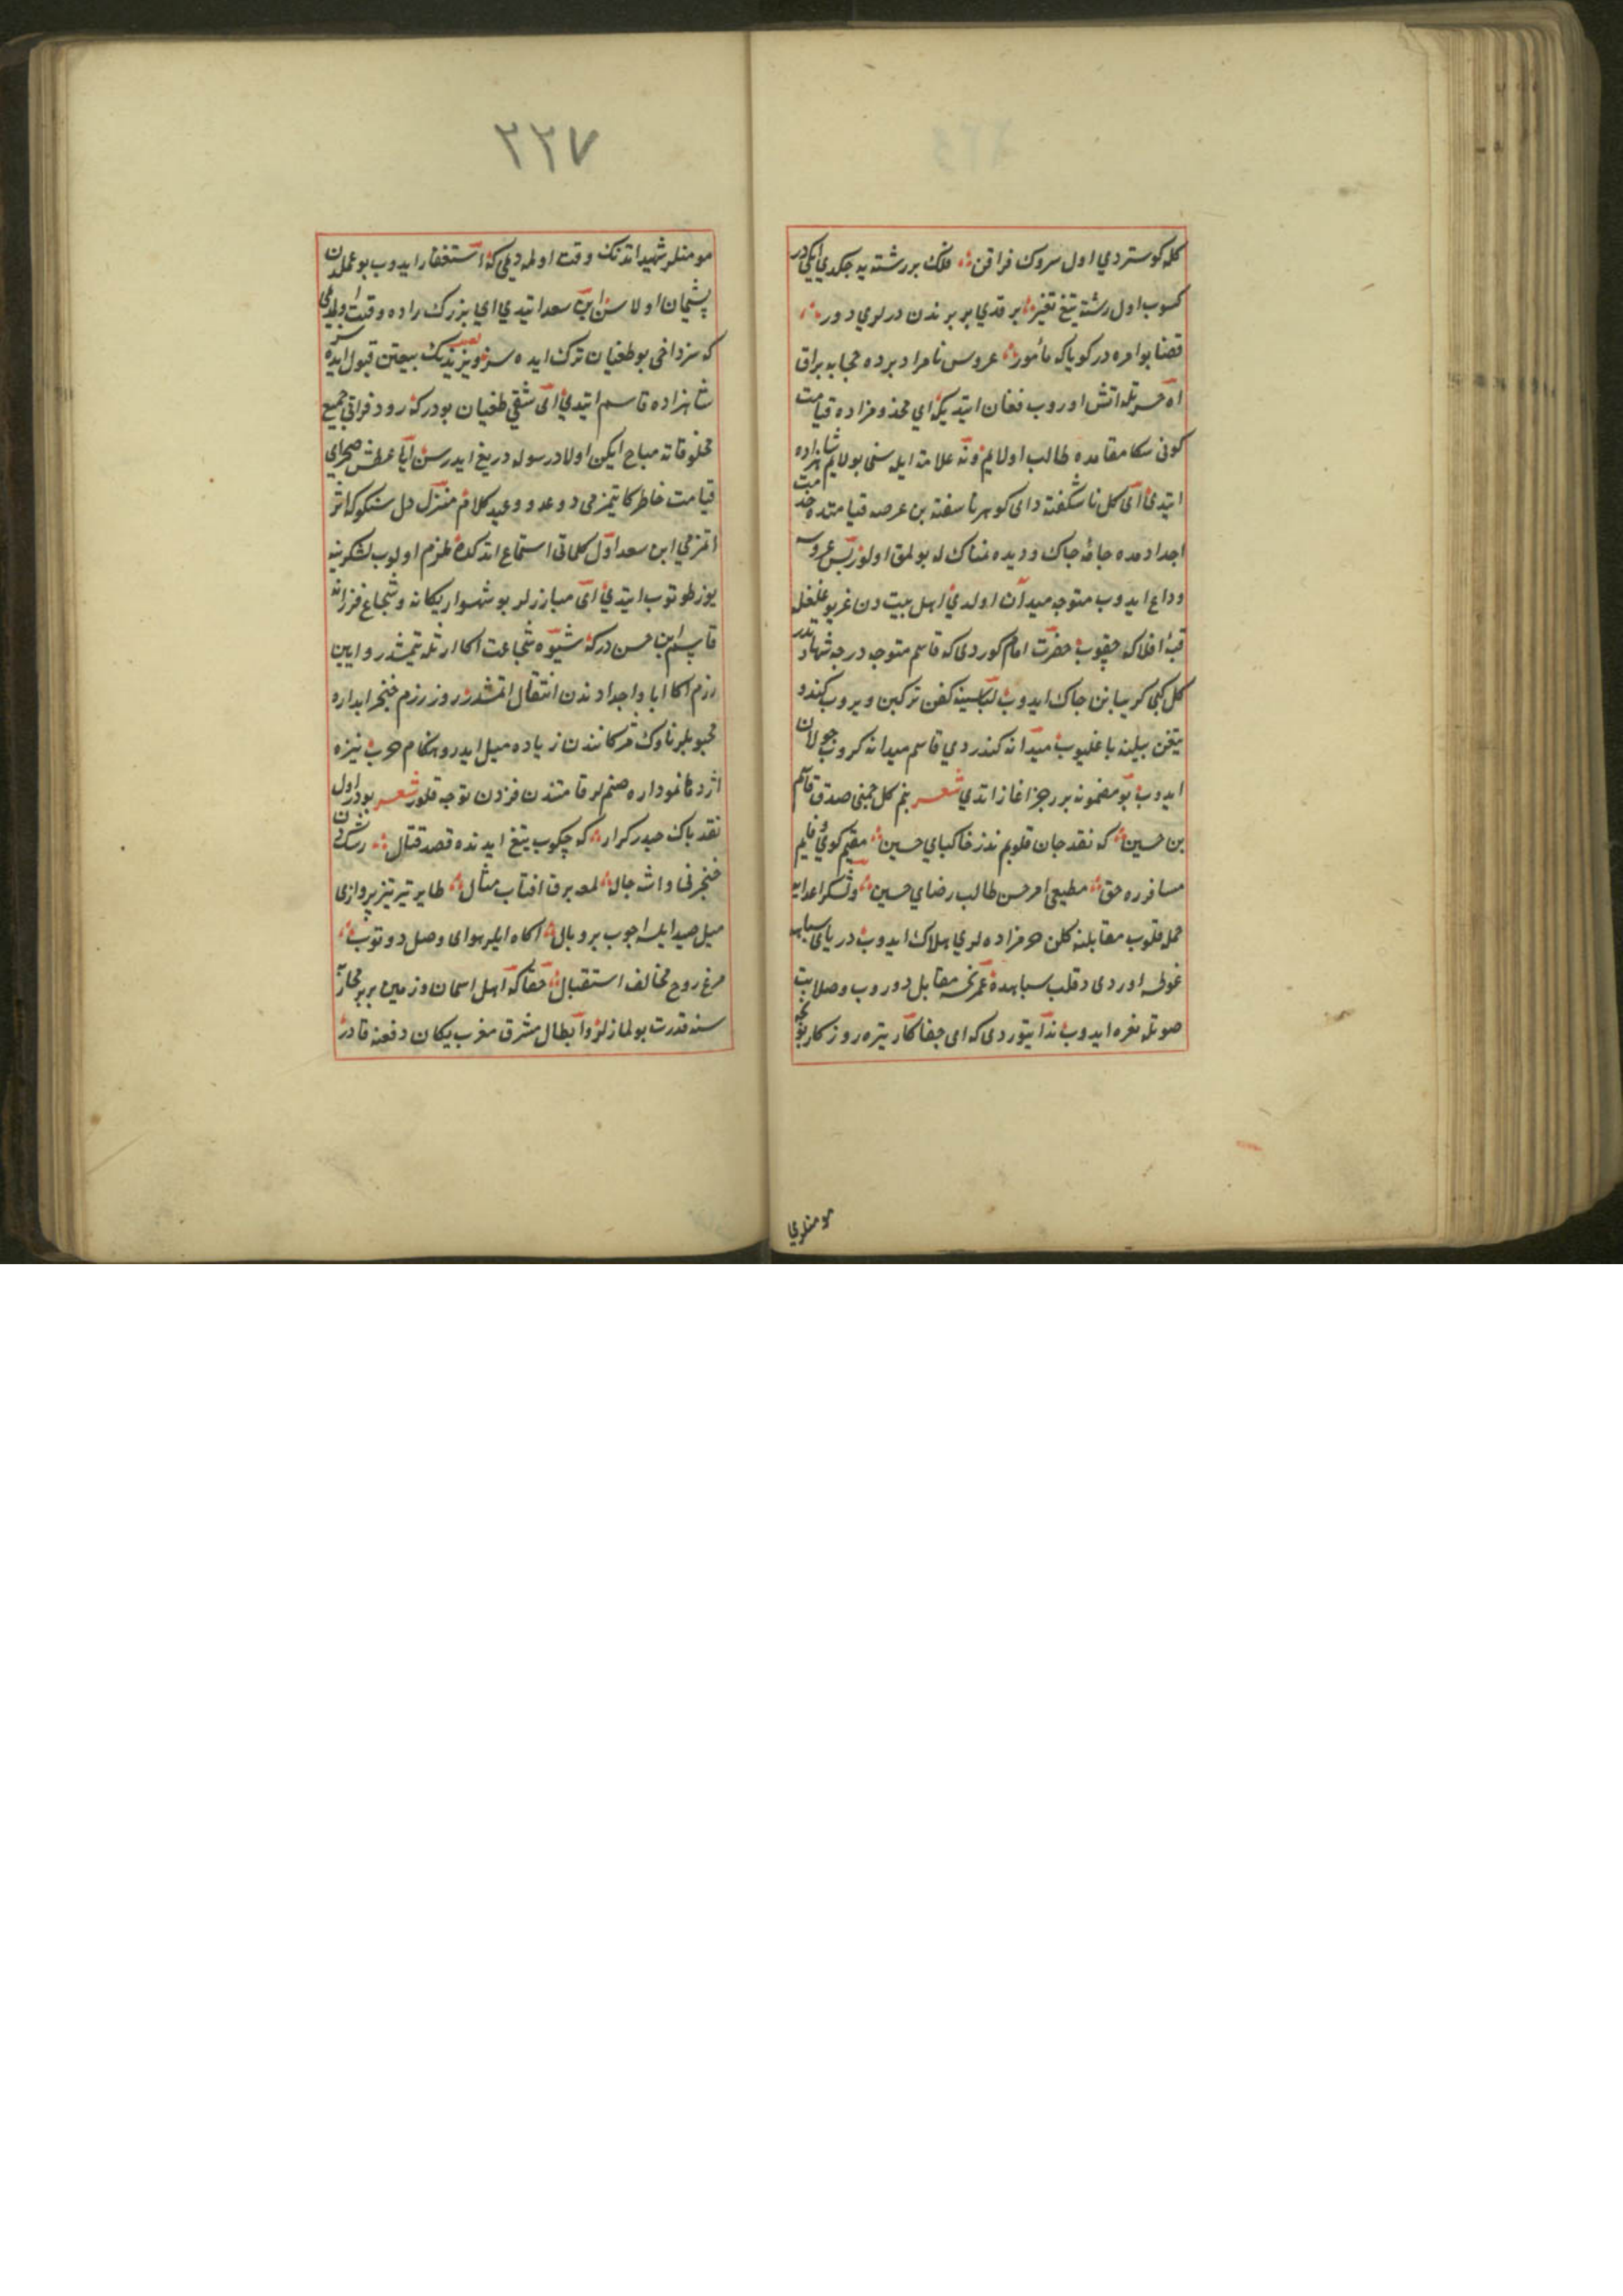 كله كوستردي اول سروك فراقن فلك بر رشته يه جكدي ايكي در
كسوب اول رشته يتغ تغير برقدي بر برندن درلري دور
قضا بو امره در كويا كه مأمور عروس نامراد برده حجابه براق
اه حسرتله اتش اوروب فغان ايتديكه اي مخذومزاده قيامت
كوني سكا مقامده طالب اولايم ونه علامة ايله سني بولايم شاهزاده
ايتدي اى كل ناشكفته داى كوهر ناسفته بن عرصه قيامتده خدمت
اجدادمده جامه جاك و ديده نمناك له بولمق اولورس پس عروسه
وداع ايدوب متوجه ميدان اولدي اهل بيت دن غريو غلغله
قبه افلاكه چقوب حضرت امام كوردى كه قاسم متوجه درجه شهادتدر
كل كبي كريبانن جاك ايدوب لباسينه كفن تركبن ويروب كندو
يتغن بيلنه باغليوب ميدانه كندردي قاسم ميدانه كروب جولان
ايدوب بو مضمونه بر رجز اغاز اتدي شعر بنم كل جمني صدق قاسم
بن حسين كه نقد جان قلوبم نذر خاكپاي حسين مقيم كوي وفايم
مسافر ره حق مطيع امر حسن طالب رضاي حسين ولشكر اعدايه
حمله قلوب مقابلنه كلن حرمزاده لري هلاك ايدوب درياى سپاهه
غوطه اوردى و قلب سپاهده عمر نحسه مقابل دوروب و صلابت
صوتله نعره ايدوب ندا يتوردى كه اى جفاكار تيره روزكار بونجه
مومنلري
٢٢٧
مومنلر شهيد اتدنك وقت اولمه ديمي كه استغفار ايدوب بو عملدن
پشيمان اولاسن ابن سعد ايتدي اي بزرك زاده وقت اولمديمي
كه سز داخي بو طغيان ترك ايده سز و يزيدك بيعتن قبول ايده سز
شاهزاده قاسم ايتدي اى شقي طغيان بودر كه رود فراتي جميع
مخلوقاته مباح ايكن اولاد رسوله دريغ ايدرسن ايا عطش صحراى
قيامت خاطركا يتمزمي و وعد و وعيد كلام منزل دل سنكوكه اثر
اتمزمي ابن سعد اول كلماتي استماع اتدكده ملزم اولوب لشكرينه
يوز طوتوب ايتدي اى مبارزلر بو شهسوار يكانه و شجاع فرزانه
قاسم ابن حسن در كه شيوه شجاعت اكا ارثله يتمشدر و ايين
رزم اكا ابا و اجدادندن انتقال اتمشدر روز رزم خنجر ابداره
محبوبلر ناوك مژكانندن زياده ميل ايدر و هنكام حرب نيزه
اژدها نموداره صنملر قامتندن فزون توجه قلور شعر بودر اول
نقد پاك حيدر كرار كه چكوب يتغ ايدنده قصد قتال رشكدن
خنجرني و اشه جال لمعه برق افتاب مثال طاير تير تيز پروازى
ميل صيد ايلسه اجوب پر و بالى اكاه ايلر هواى وصل دوتوب
مرغ روح مخالف استقبال حقا كه اهل اسمان و زمين برر محاز
سنه قدرت بولمازلر و ابطال مشرق مغرب يكان دفعنه قادر